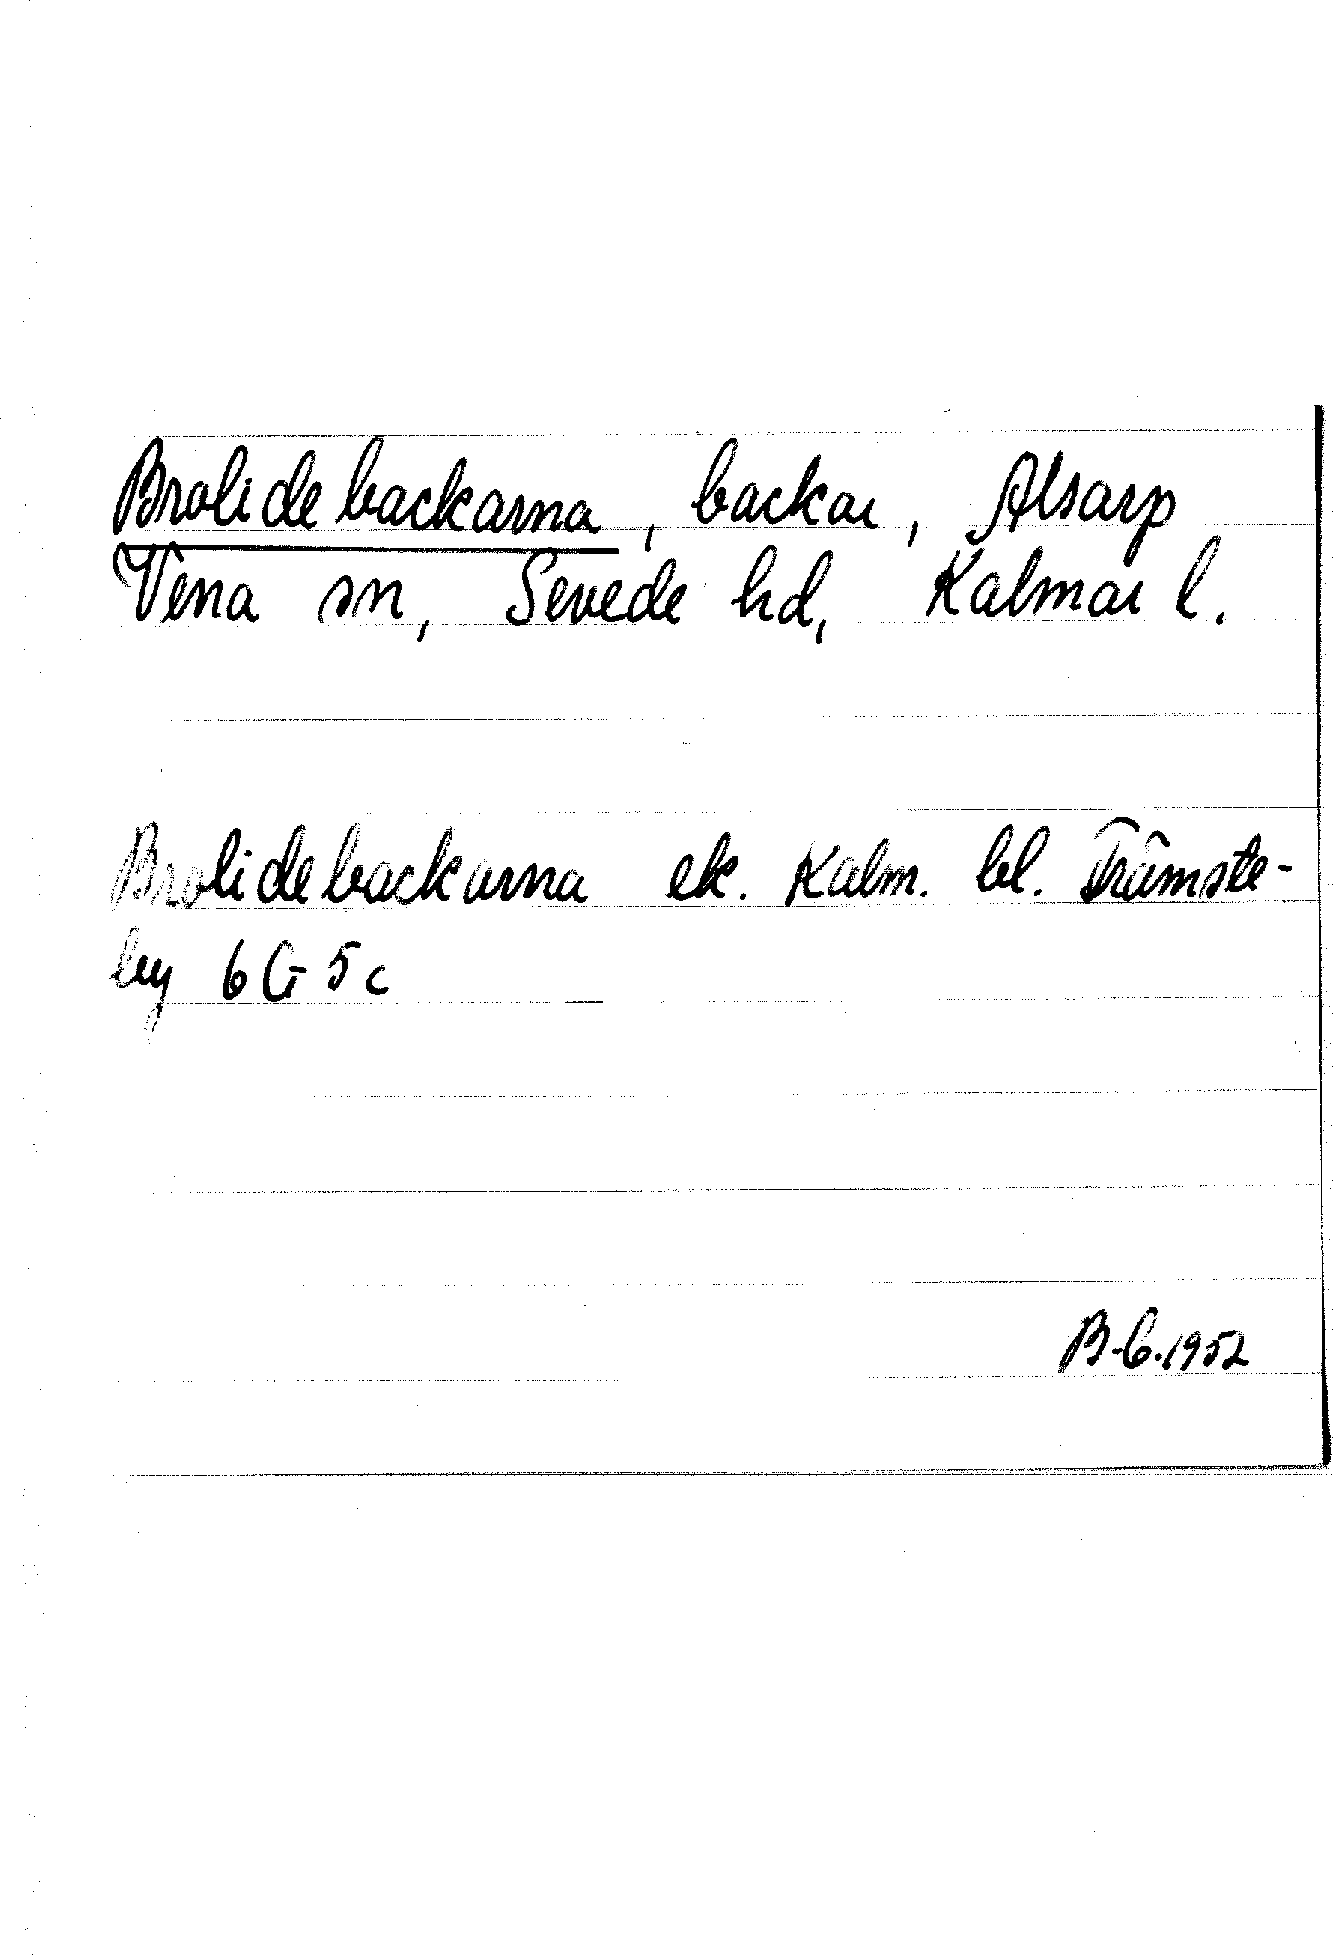 Brolidebackarna, backar, Alsarp
Vena sn, Sevede hd, Kalmar l.
Brolidebackarna ek. Kalm. bl. Trämste-
by 6 G 5 c
B-6.1952